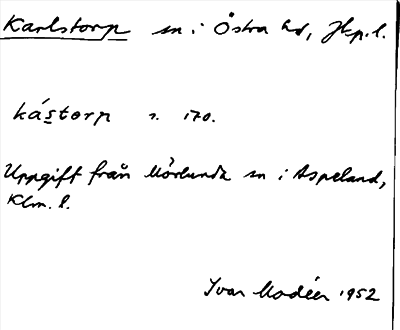 Karlstorp sn i Östra hd, Jkp.l.
kástorp s. 170.
Uppgift från Mörlunda sn i Aspeland,
Klm. l.
Ivar Modéer 1952